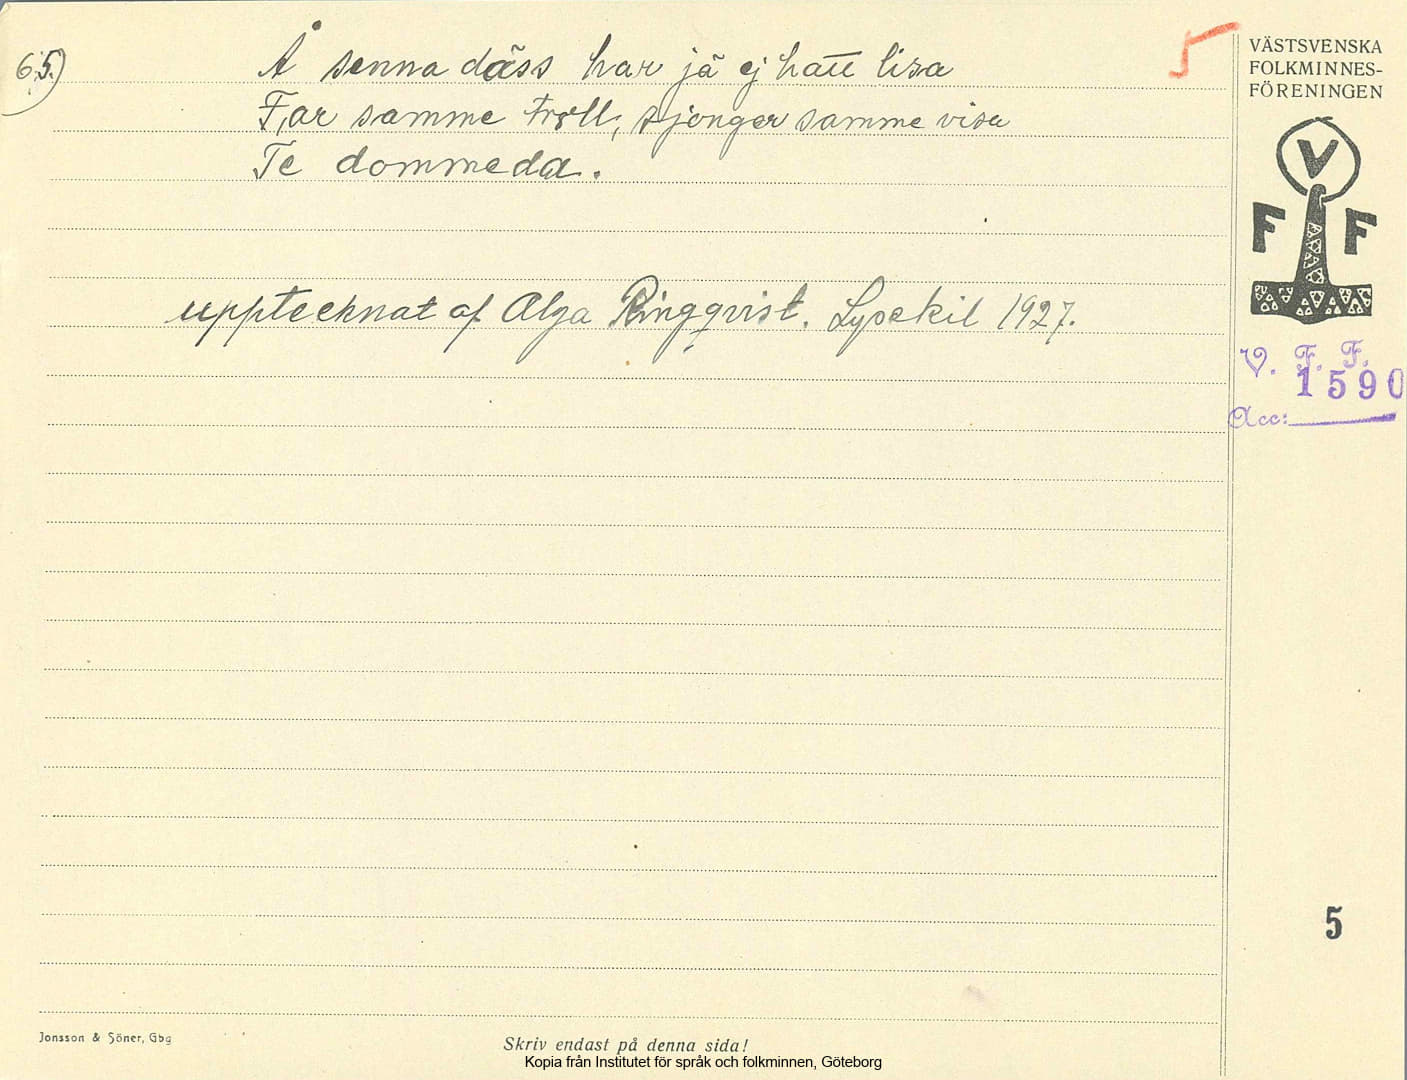 65)
Å senna däss har jä ej hatt lisa
Får samme troll, sjonger samme visa
Te dommeda.
upptecknat af Alga Ringqvist. Lysekil 1927.
5
VÄSTSVENSKA
FOLKMINNES-
FÖRENINGEN
V
F F
V. F. F.
1590
Acc:
5
Jonsson & Söner, Gbg
Skriv endast på denna sida!
Kopia från Institutet för språk och folkminnen, Göteborg